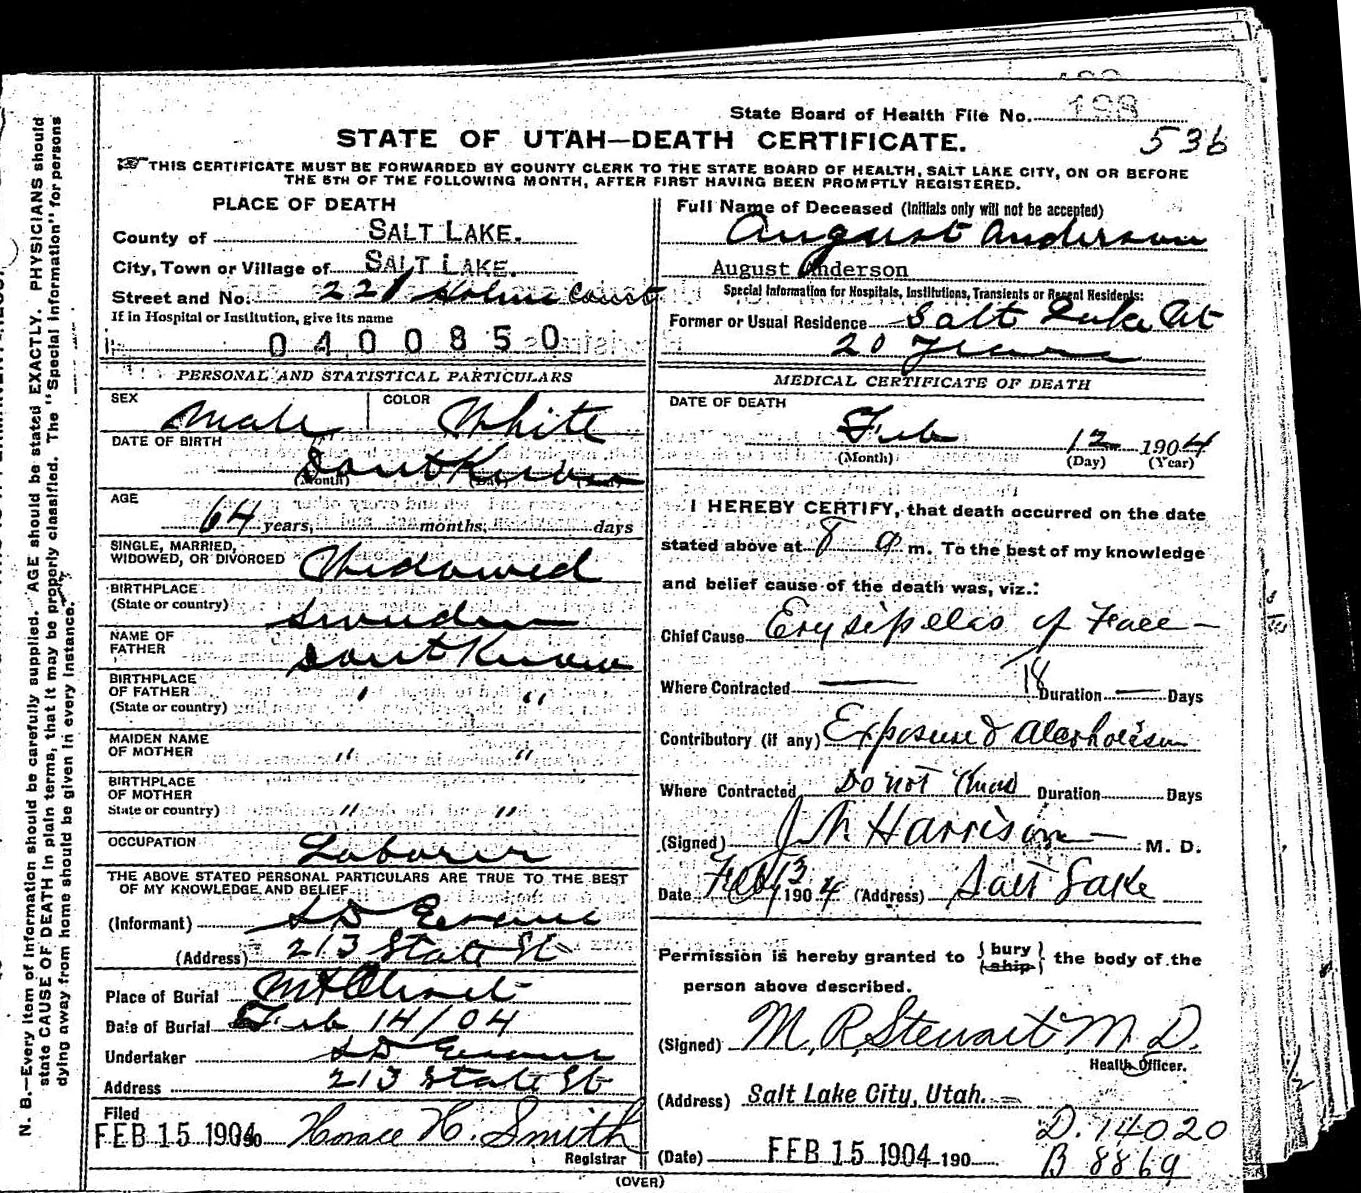 State Board of Health File No. 198
536
STATE OF UTAH—DEATH CERTIFICATE.
THIS CERTIFICATE MUST BE FORWARDED BY COUNTY CLERK TO THE STATE BOARD OF HEALTH, SALT LAKE CITY, ON OR BEFORE
THE 5TH OF THE FOLLOWING MONTH, AFTER FIRST HAVING BEEN PROMPTLY REGISTERED.
PLACE OF DEATH
County of SALT LAKE.
City, Town or Village of SALT LAKE.
Street and No. 221 Court
If in Hospital or Institution, give its name
0400850
PERSONAL AND STATISTICAL PARTICULARS
SEX Male COLOR White
DATE OF BIRTH
Dont Know
(Month) (Day) (Year)
AGE
64 years, months, days
SINGLE, MARRIED,
WIDOWED, OR DIVORCED Widowed
BIRTHPLACE
(State or country) Sweden
NAME OF
FATHER Dont Know
BIRTHPLACE
OF FATHER " "
(State or country)
MAIDEN NAME
OF MOTHER " "
BIRTHPLACE
OF MOTHER
State or country) " "
OCCUPATION Laborer
THE ABOVE STATED PERSONAL PARTICULARS ARE TRUE TO THE BEST
OF MY KNOWLEDGE AND BELIEF
(Informant) S D Evans
(Address) 213 State St
Place of Burial Mt Olivet
Date of Burial Feb 14/04
Undertaker S D Evans
Address 213 State St
Filed
FEB 15 1904 190 Horace H. Smith
Registrar
Full Name of Deceased (Initials only will not be accepted)
August Anderson
August Anderson
Special Information for Hospitals, Institutions, Transients or Recent Residents:
Former or Usual Residence Salt Lake
20 Years
MEDICAL CERTIFICATE OF DEATH
DATE OF DEATH
Feb 12 1904
(Month) (Day) (Year)
I HEREBY CERTIFY, that death occurred on the date
stated above at 8 a m. To the best of my knowledge
and belief cause of the death was, viz.:
Chief Cause Erysipelas of Face
Where Contracted — 18 Duration — Days
Contributory (if any) Exposure & Alcoholism
Where Contracted Do not Know Duration Days
(Signed) J N Harrison M. D.
Date Feb 13 1904 (Address) Salt Lake
Permission is hereby granted to { bury ship } the body of the
person above described.
(Signed) M. R. Stewart M. D.
Health Officer.
(Address) Salt Lake City, Utah.
D. 14020
(Date) FEB 15 1904 190
B 8869
(OVER)
N. B.—Every item of information should be carefully supplied. AGE should be stated EXACTLY. PHYSICIANS should
state CAUSE OF DEATH in plain terms, that it may be properly classified. The "Special Information" for persons
dying away from home should be given in every instance.